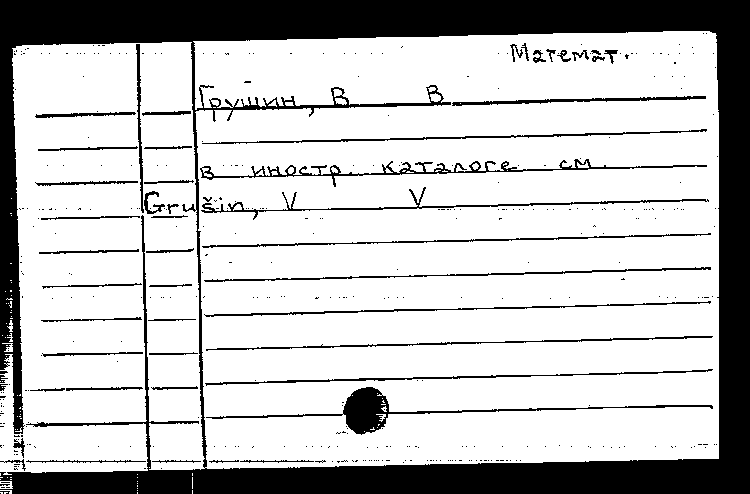 Математ.
Грушин, В В
в иностр. каталоге см.
Grušin, V V